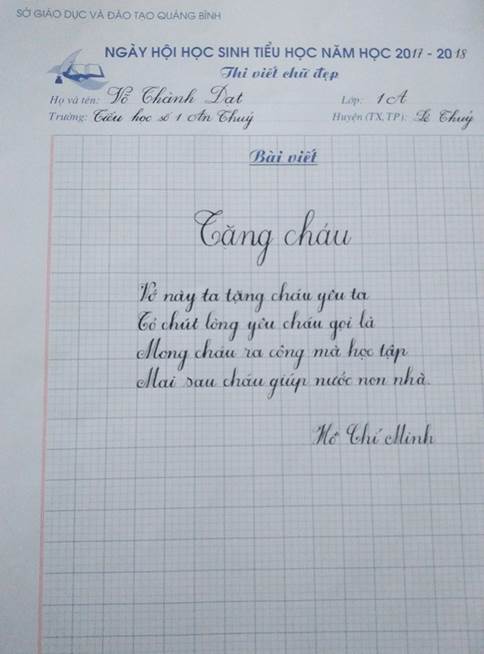 SỞ GIÁO DỤC VÀ ĐÀO TẠO QUẢNG BÌNH
NGÀY HỘI HỌC SINH TIỂU HỌC NĂM HỌC 2017 - 2018
Thi viết chữ đẹp
Họ và tên: Võ Thành Đạt Lớp: 1A
Trường: Tiểu học số 1 An Thuỷ Huyện (TX, TP): Lệ Thuỷ
Bài viết
Tặng cháu
Vở này ta tặng cháu yêu ta
Tỏ chút lòng yêu cháu gọi là
Mong cháu ra công mà học tập
Mai sau cháu giúp nước non nhà.
Hồ Chí Minh